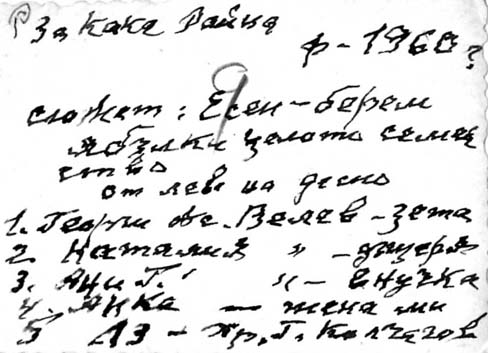 За Кака Райна
ф-1960?
9
сюжет: Есен-берем
ябълки цялото семей
ство
от лево на десно
1. Георги Ас. Велев-зета
2. Наталия " -дъщеря
3. Ани Г. " - внучка
4. Анка - жена ми
5 Аз - Хр. Г. Колчагов